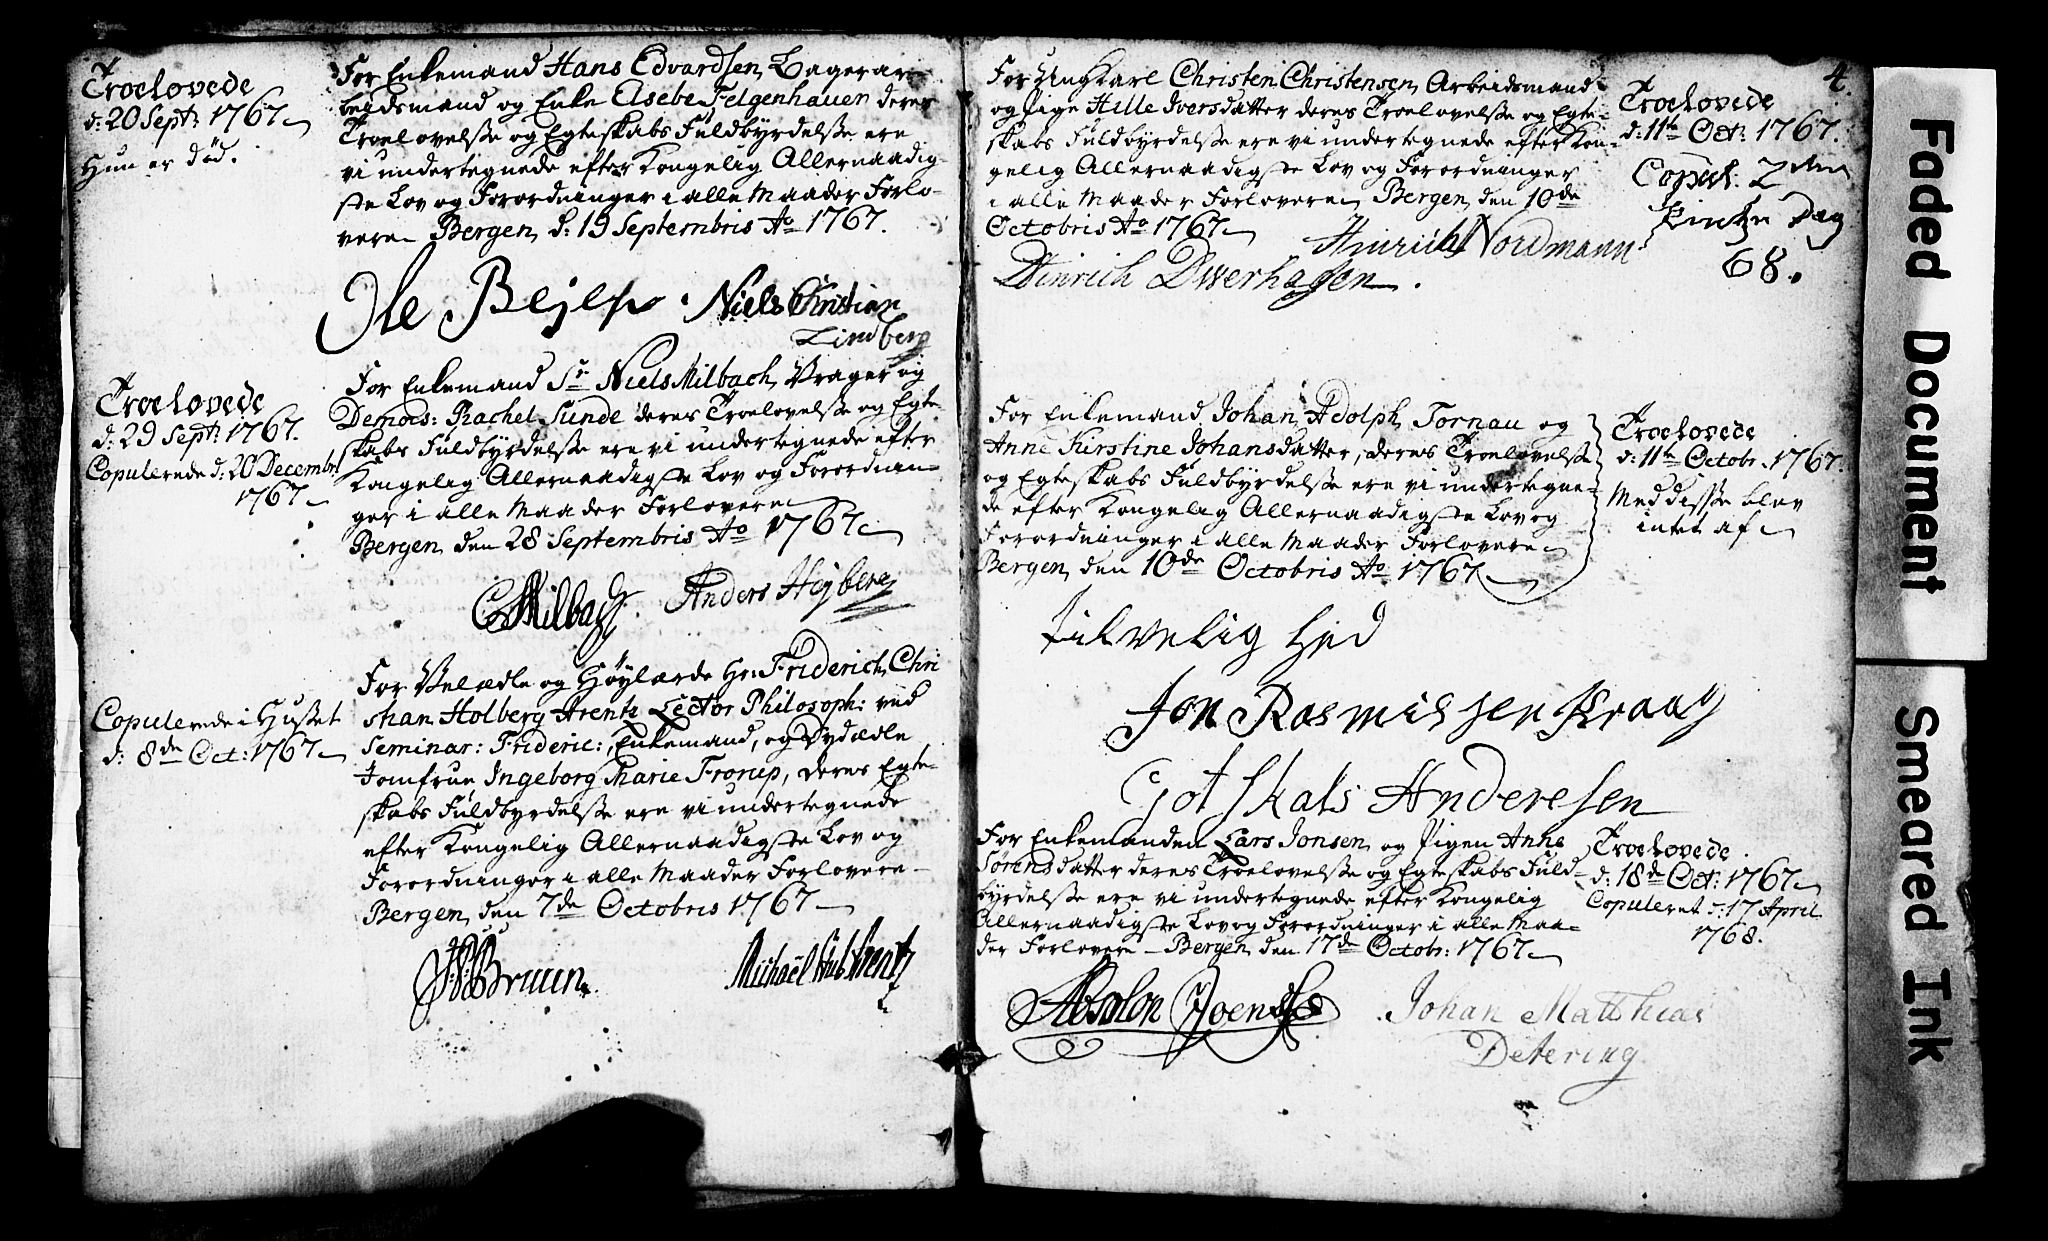 Troelovede
d: 20 Septr: 1767.
Hun er død.
For Enkemand Hans Edvardsen, Bagerar-
beidsmand og Enke Elsebe Felgenhauer deres
Troelovelsse og Egteskabs Fuldbyrdelsse ere
vi undertegnede efter Kongelig Allernaadig-
ste Lov og Forordninger i alle Maader Forlo-
vere Bergen, d: 19 Septembris Ao 1767.
Niels Christian
Lindberg
Troelovede
d: 29 Septr: 1767.
Copulerede d: 20 Decembr
1767
For Enkemand Sr Niels Milbach, Vrager og
Demois: Rachel Sunde deres Troelovelsse og Egte-
skabs Fuldbyrdelsse ere vi undertegnede efter
Kongelig Allernaadigste Lov og Forordnin-
ger i alle Maader Forlovere
Bergen, den 28 Septembris Ao 1767
Milbach Anders Høyberg
Copulerede i Husset
d: 8de Oct: 1767
For Velædle og Høylærde Hr: Friderich Chri
stian Holberg Arentz Lector Philosoph: ved
Seminar: Frideric:, Enkemand, og Dydædle
Jomfrue Ingeborg Marie Frorup, deres Egte-
skabs Fuldbyrdelsse ere vi undertegnede
efter Kongelig Allernaadigste Lov og
Forordninger i alle Maader Forlovere
Bergen, den 7de Octobris 1767
Bruun Michaël Hub Arentz
4.
For Ungkarl Christen Christensen, Arbeidsmand
og Pige Hille Iversdatter deres Troelovelsse og Egte-
skabs Fuldbyrdelsse ere vi undertegnede efter Kon-
gelig Allernaadigste Lov og Forordninger
i alle Maader Forlovere, Bergen, den 10de
Octobris Ao 1767
Hinrich Nordmann
Hinrich Dwerhagen
Troelovede
d: 11te Octr: 1767.
Copul: 2den
Pintze Dag
68.
For Enkemand Johan Adolph Tornau og
Anne Kirstine Johansdatter, deres Troelovelsse
og Egteskabs Fuldbyrdelsse ere vi undertegne-
de efter Kongelig Allernaadigste Lov og
Forordninger i alle Maader Forlovere
Bergen, den 10de Octobris Ao 1767
Troelovede
d: 11te Octobr. 1767.
Med disse blev
intet af
Jon Rasmussen Kraag
Gotskalk Anderesen
For Enkemanden Lars Jonsen, og Pigen Anne
Sørensdatter deres Troelovelsse og Egteskabs Fuld-
byrdelsse ere vi undertegnede efter Kongelig
Allernaadigste Lov og Forordninger i alle Maa-
der Forlovere – Bergen, den 17de Octobr: 1767
Troelovede
d: 18de Oct: 1767
Copuleret d: 17 April
1768.
Absolon Joensen
Johan Matthias
Detering
Faded Document
Smeared Ink